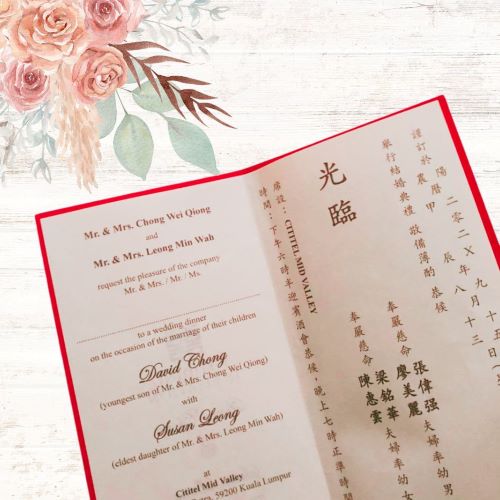 Mr. & Mrs. Chong Wei Qiong
and
Mr. & Mrs. Leong Min Wah
request the pleasure of the company
Mr. & Mrs. / Mr. / Ms.
to a wedding dinner
on the occasion of the marriage of their children
David Chong
(youngest son of Mr. & Mrs. Chong Wei Qiong)
with
Susan Leong
(eldest daughter of Mr. & Mrs. Leong Min Wah)
at
Cititel Mid Valley
59200 Kuala Lumpur
九月十五
二零二X年八月十三
陽曆甲辰
謹訂於農
舉行結婚典禮 敬備薄酌 恭候
張偉强
奉嚴慈命 夫婦率幼男
廖美麗
梁銘華
奉嚴慈命 夫婦率幼
陳惠雲
光臨
席設：CITITEL MID VALLEY
時間：下午六時半迎賓酒會恭候，晚上七時正準時